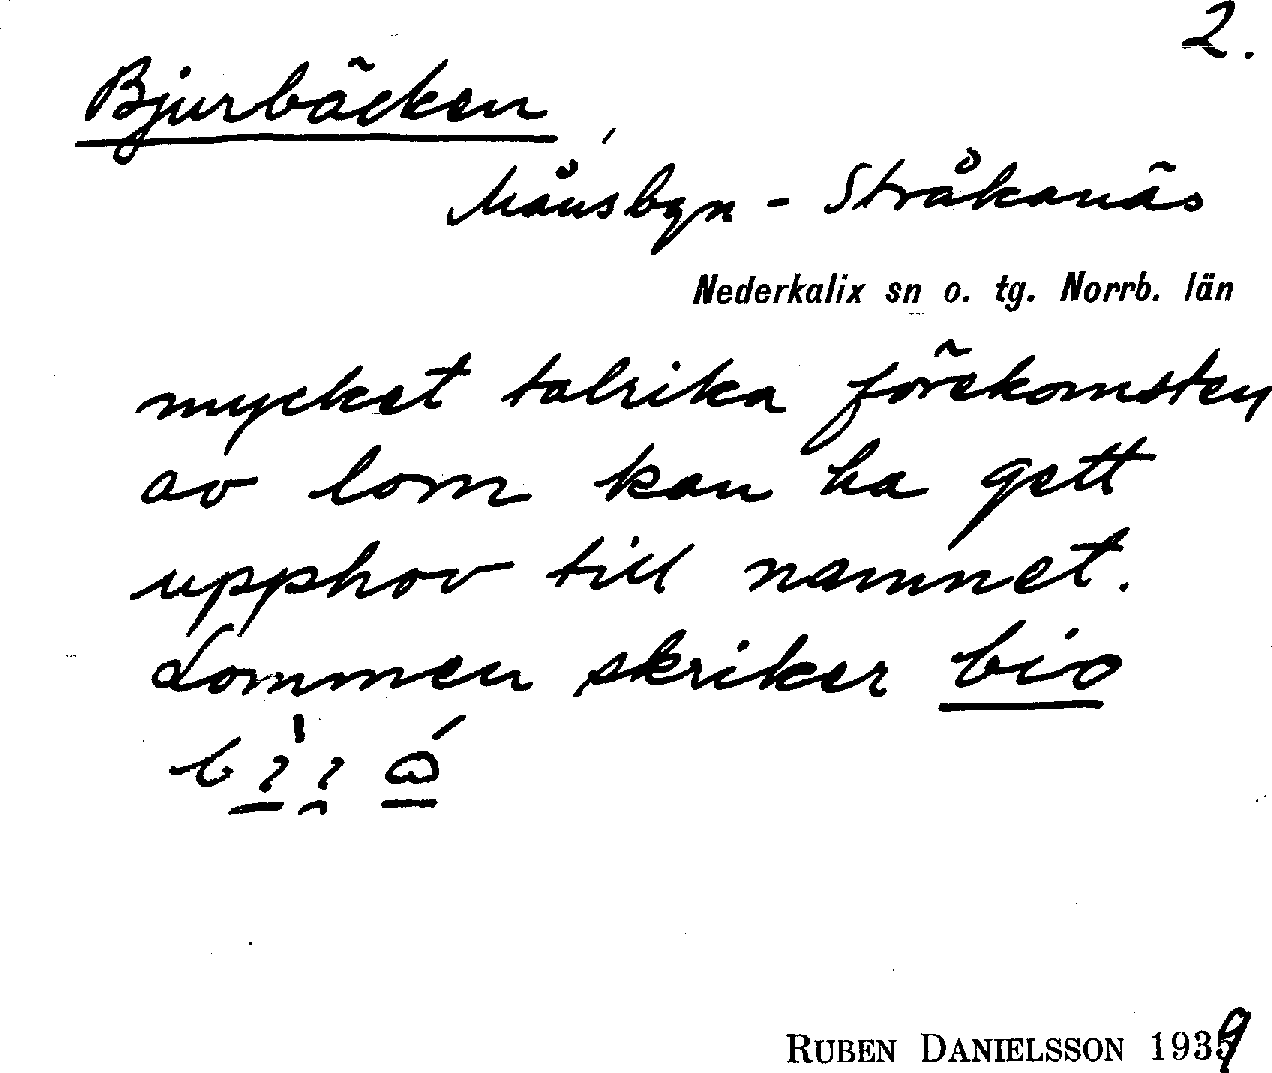 2.
Bjurbäcken
Månsbyn - Stråkanäs
Nederkalix sn o. tg. Norrb. län
mycket talrika förekomsten
av lom kan ha gett
upphov till namnet.
Lommen skriker bio
RUBEN DANIELSSON 1939